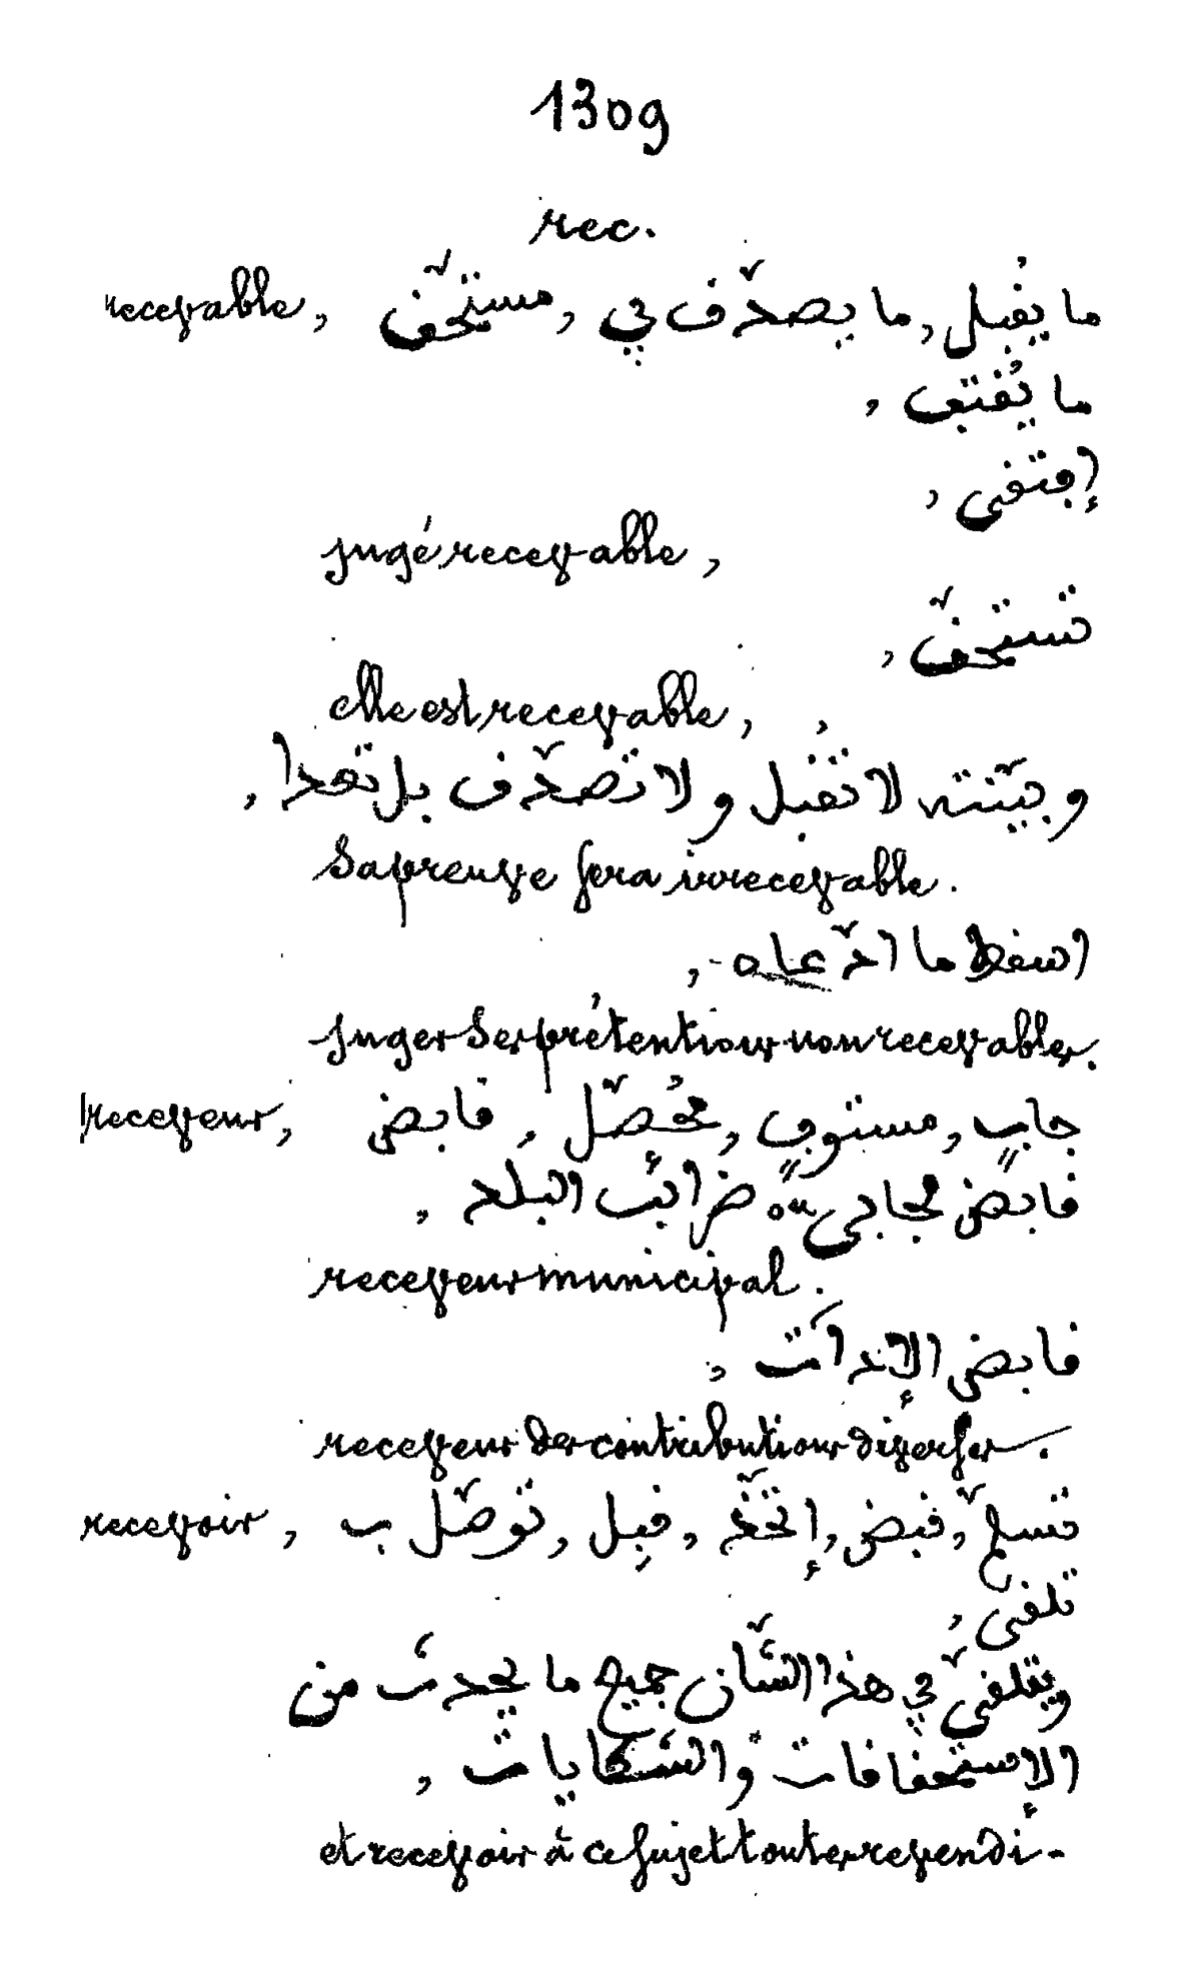 1309
rec.
recevable, ما يُقبل, ما يصدّق في, مستحقّ
ما يُقتفى,
إقتفى,
jugé recevable,
تستحقّ,
elle est recevable,
و بيّنته لا تُقبل و لا تصدّق بل تعدا,
Sa preuve sera irrecevable.
اسقط ما ادّعاه,
juger Ses prétentions non recevables.
receveur, جابٍ, مستوفٍ, مُحصّل, قابض
قابض مجابى ou ضرائب البلد,
receveur municipal.
قابض الإدآت,
receveur des contributions diverses.
recevoir, تسلّم, قبض, إتّخذ, قبِل, توصّل ب
تلقى,
ويتلقّى في هذا الشّأن جميع ما يحدث من
الإستحقاقات والشكايات,
et recevoir à ce sujet toutes revendi-